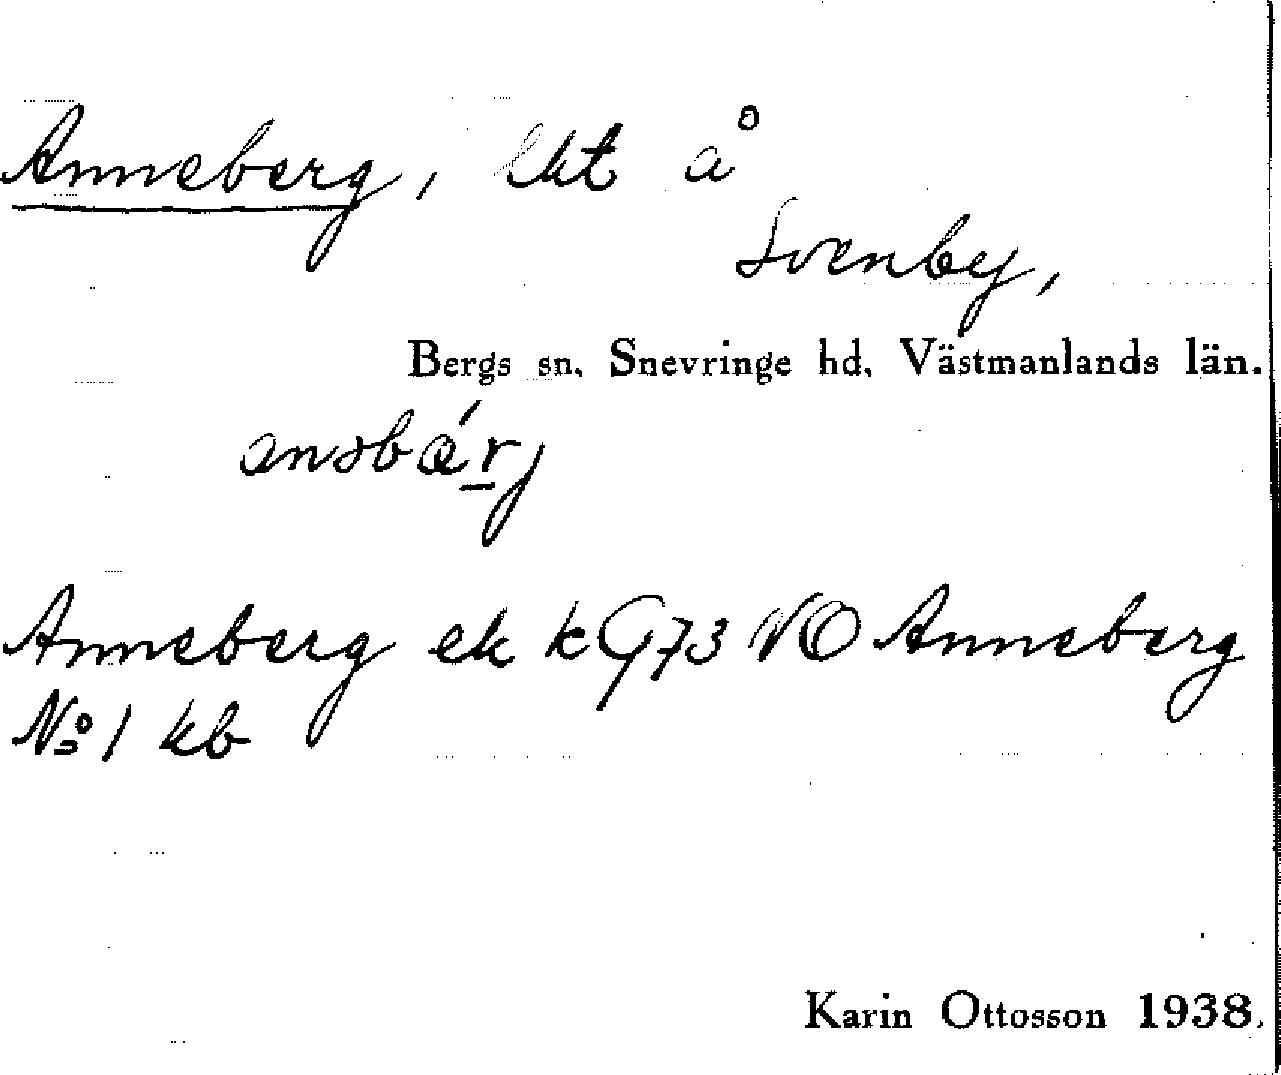 Anneberg, lht å
Svenby,
Bergs sn, Snevringe hd, Västmanlands län.
anəbǽrj
Anneberg ek kG73 NO Anneberg
No 1 kb
Karin Ottosson 1938.